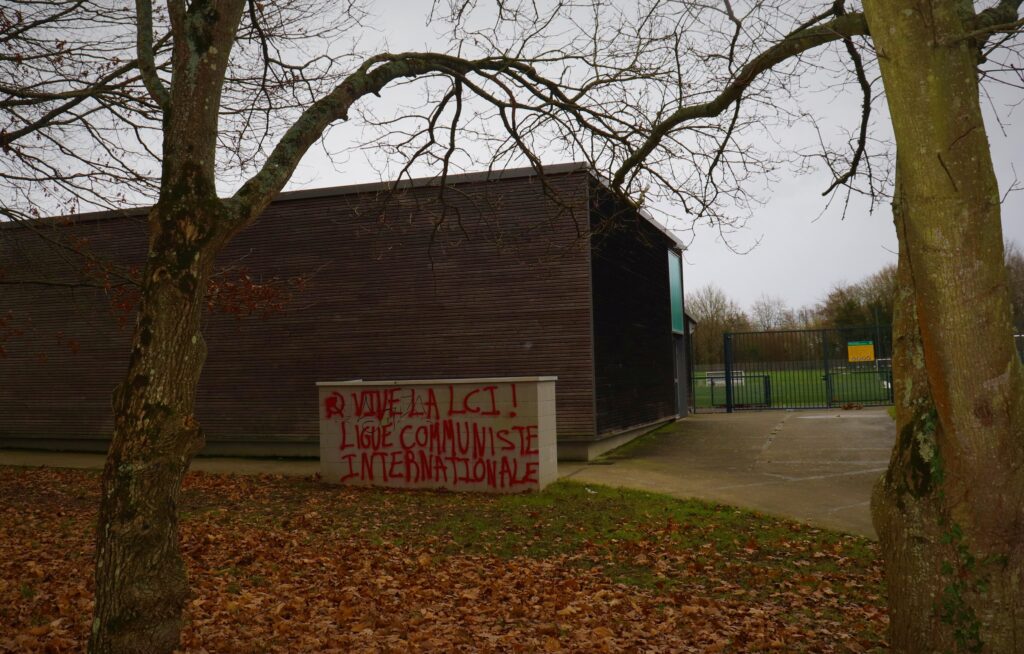 VIVE LA LCI !
LIGUE COMMUNISTE
INTERNATIONALE